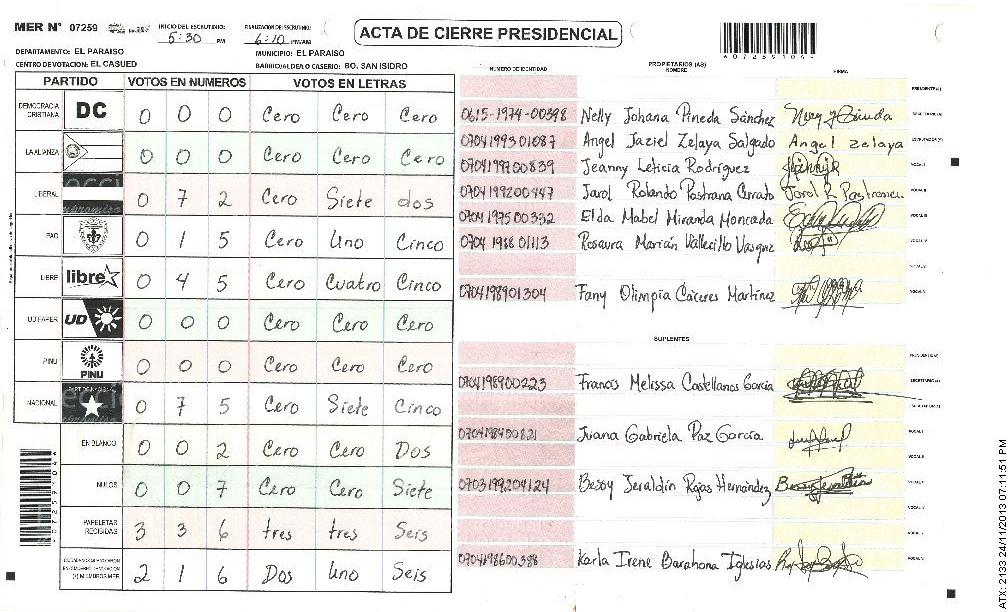 MER N° 07259 INICIO DEL ESCRUTINIO: 5:30 PM FINALIZACION DEL ESCRUTINIO: 6:10 PM/AM
ACTA DE CIERRE PRESIDENCIAL
A072591094
DEPARTAMENTO: EL PARAISO MUNICIPIO: EL PARAISO
CENTRO DE VOTACION: EL CASUED BARRIO/ALDEA O CASERIO: BO. SAN ISIDRO
PARTIDO VOTOS EN NUMEROS VOTOS EN LETRAS
DEMOCRACIA CRISTIANA DC 0 0 0 Cero Cero Cero
LA ALIANZA 0 0 0 Cero Cero Cero
LIBERAL 0 7 2 Cero Siete dos
PAC 0 1 5 Cero Uno Cinco
LIBRE libre 0 4 5 Cero Cuatro Cinco
UD FAPER UD 0 0 0 Cero Cero Cero
PINU PINU 0 0 0 Cero Cero Cero
NACIONAL 0 7 5 Cero Siete Cinco
EN BLANCO 0 0 2 Cero Cero Dos
NULOS 0 0 7 Cero Cero Siete
PAPELETAS RECIBIDAS 3 3 6 tres tres Seis
2 1 6 Dos Uno Seis
NUMERO DE IDENTIDAD PROPIETARIOS (AS) NOMBRE FIRMA
PRESIDENTE(A)
0615-1974-00398 Nelly Johana Pineda Sánchez SECRETARIO(A)
0704199301087 Angel Jaziel Zelaya Salgado Angel Zelaya ESCRUTADOR(A)
0704199700839 Jeanny Leticia Rodríguez VOCAL I
0704199200447 Jarol Rolando Pastrana Cerrato Jarol R Pastrana VOCAL II
0704197500332 Elda Mabel Miranda Moncada VOCAL III
0704198801113 Rosaura Marian Vallecillo Vasquez VOCAL IV
VOCAL V
0704198901304 Fany Olimpia Cáceres Martínez VOCAL VI
SUPLENTES
PRESIDENTE(A)
0704198900223 Francis Melissa Castellanos García SECRETARIO(A)
ESCRUTADOR(A)
0704198400821 Juana Gabriela Paz García VOCAL I
VOCAL II
0703199204124 Bessy Jeraldin Rojas Hernández
0704198600388 Karla Irene Barahona Iglesias
ATX: 2133 24/11/2013 07:11:51 PM